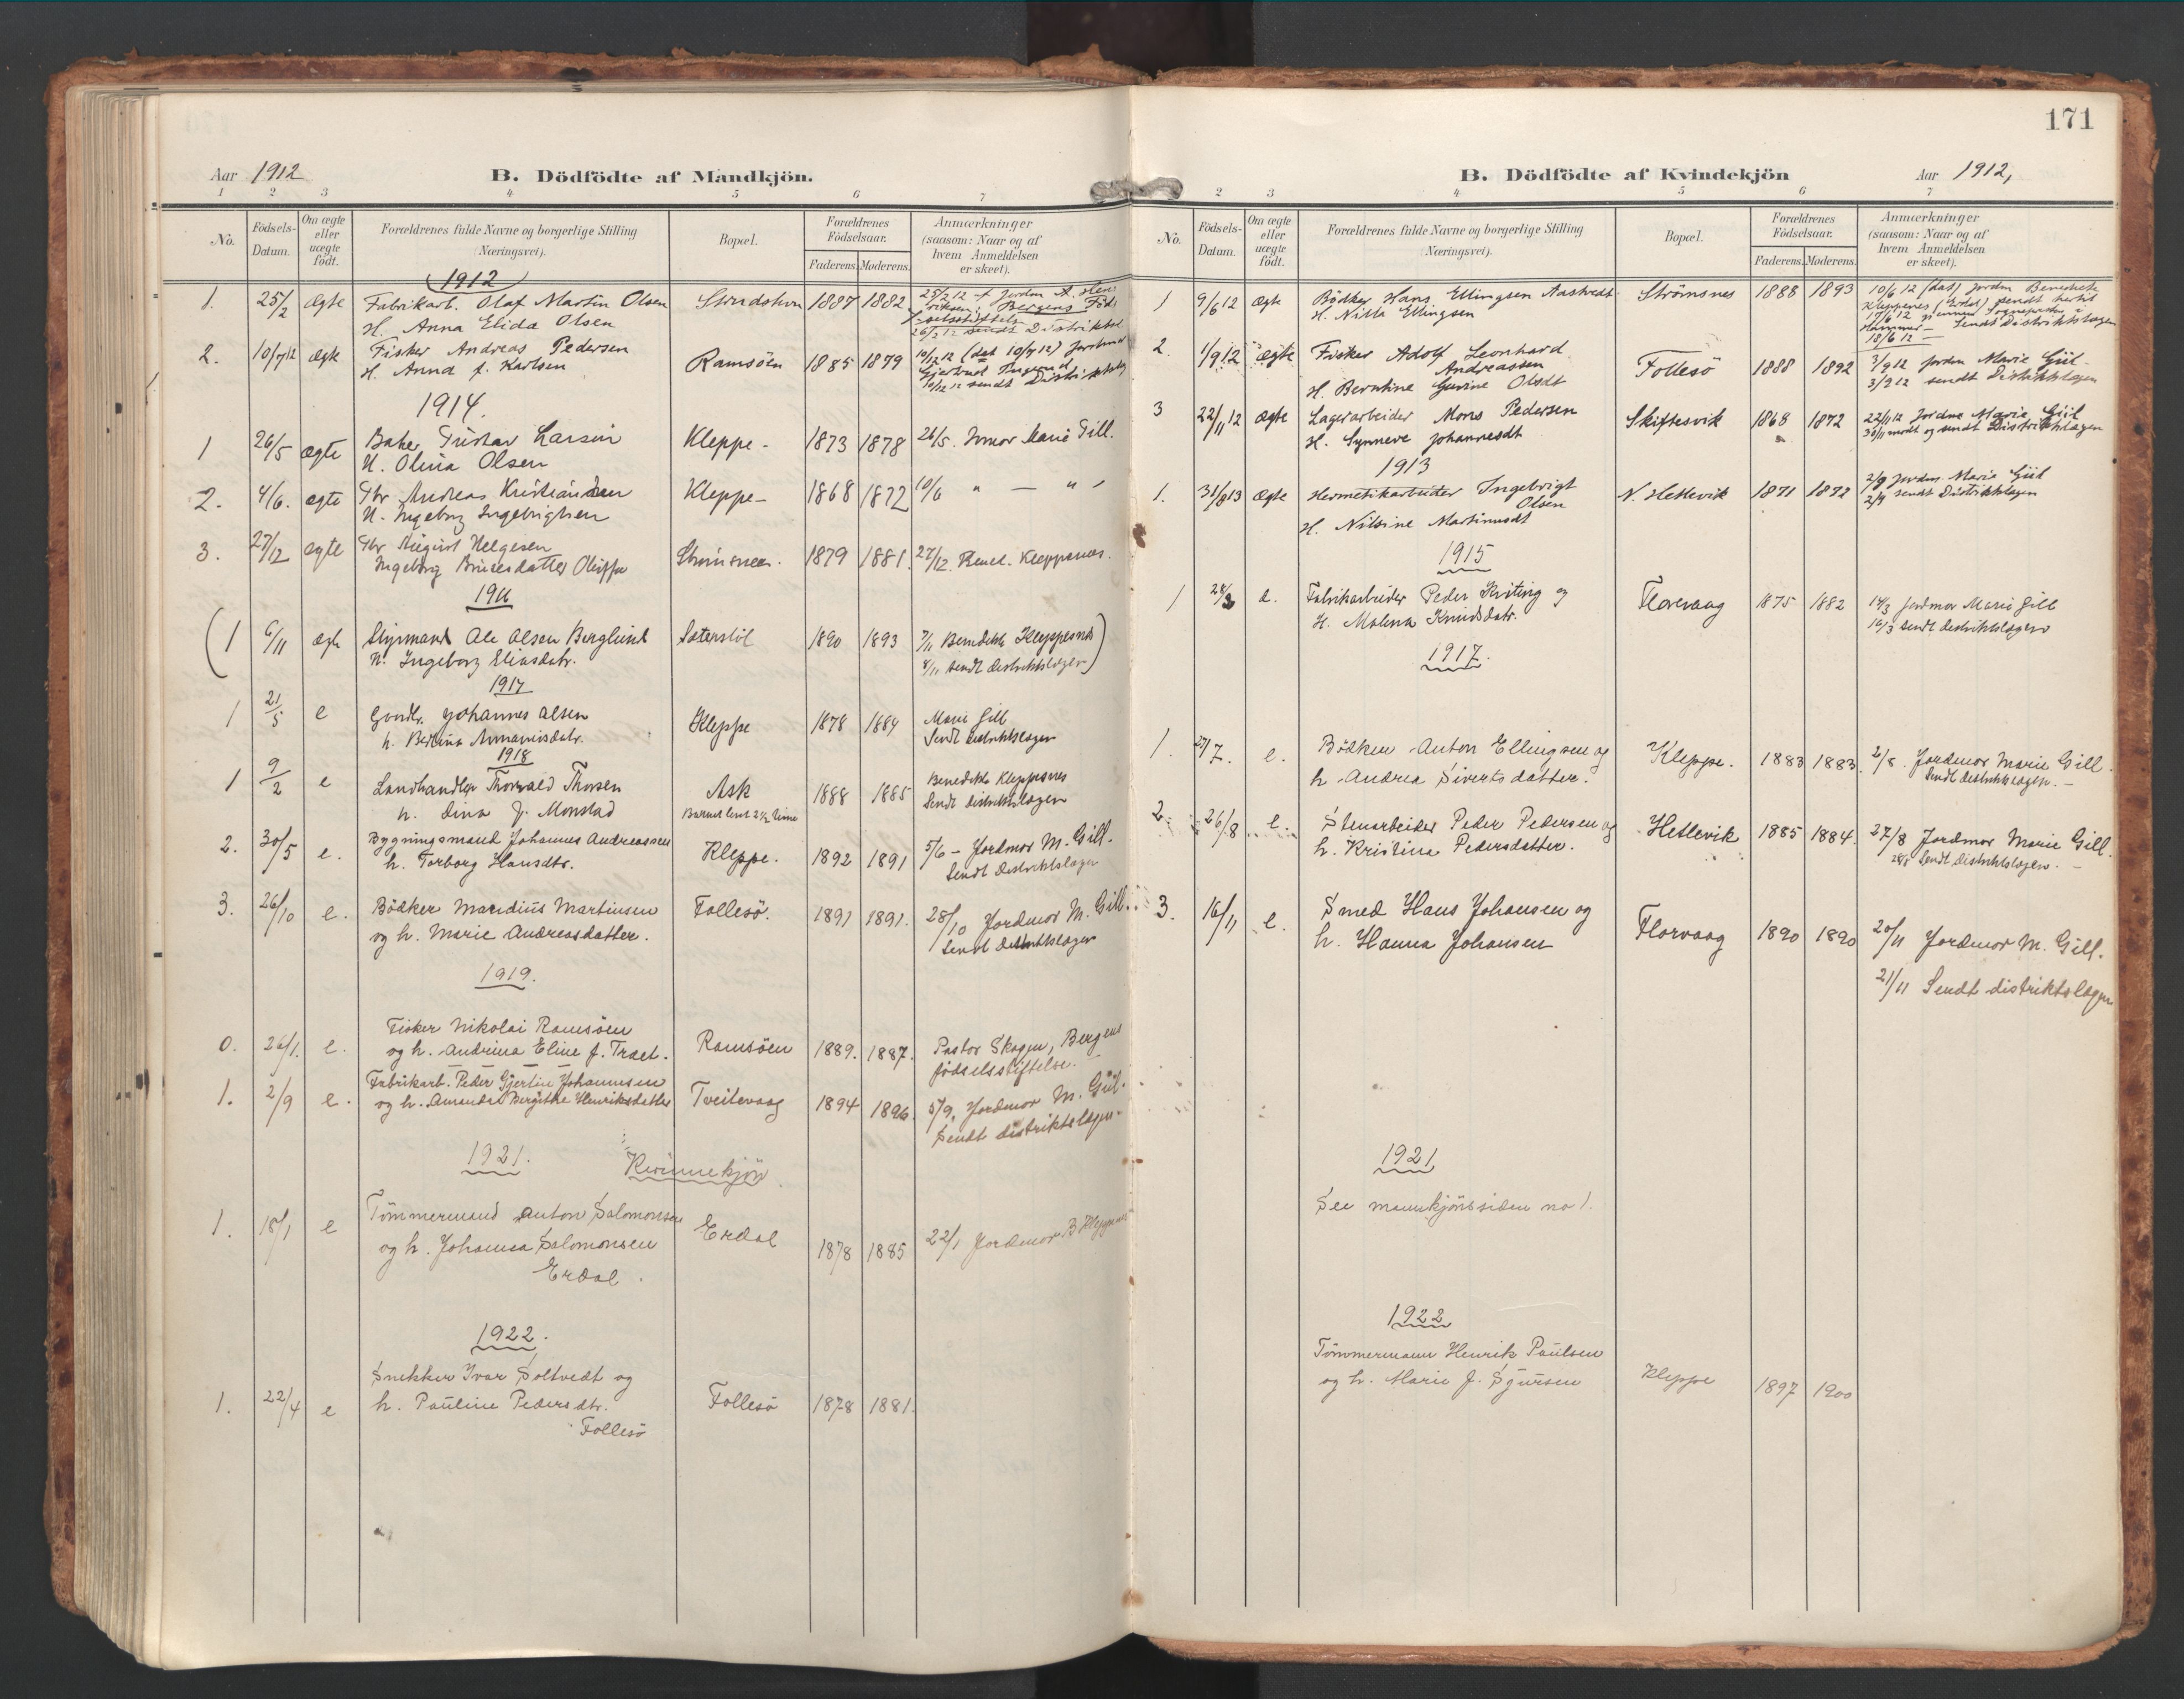 Aar 1912
B. Dödfödte af Mandkjön.
1 2 3 4 5 6 7
No.
Födsels-Datum.
Om ægte eller uægte födt.
Forældrenes fulde Navne og borgerlige Stilling (Næringsvei).
Bopæl.
Forældrenes Födselsaar.
Faderens. Moderens.
Anmærkninger (saasom: Naar og af hvem Anmeldelsen er skeet).
1912
1. 25/2 ægte Fabrikarb. Olaf Martin Olsen 1887 1882 25/2 12 Jordm A. Hen
H. Anna Elida Olsen
riksen, Bergens Föd
selsstiftelse
26/2 12 sendt Distriktsl
2. 10/7 12 ægte Fisker Andreas Pedersen Ramsöen 1885 1879 10/12 12 (das 10/7 12) Jordmor
H. Anna f. Karlsen
10/12 12 sendt Distriktslæg
1914.
1 26/5 ægte Baker Gustav Larsen Kleppe- 1873 1878 26/5. Jmor Marie Gill.
H. Olina Olsen
2. 4/6. ægte Gbr Andreas Kristiansen Kleppe- 1868 1872 10/6 " — "
H. Ingeborg Ingebrigtsen
3. 27/12 ægte Gbr August Helgesen Strömsnes. 1879 1881. 27/12. Bened. Kleppesnes.
Ingeborg
1916
(1 6/11 ægte Styrmand Ole Olsen Berglund Sæterstöl 1890 1893 7/11 Benedikte Kleppesnes
H. Ingeborg Eliasdatr. 8/11 sendt distriktslægen)
1917
1 21/5 e Gaardbr. Johannes Olsen Kleppe 1878 1884 Marie Gill
h. Bertina Annaniasdatr. Sendt distriktslægen
1918
1 9/2 e Landhandler Thorvald Thorsen Ask 1888 1885 Benedikte Kleppesnes
h. Dina f. Monstad Barnet levet 2 1/2 time Sendt distriktslægen
2. 30/5 e. Bygningsmand Johannes Andreassen Kleppe. 1892 1891 5/6 - Jordmor M. Gill.
h. Torborg Hansdtr. Sendt distriktslægen
3. 26/10 e. Bödker Mandius Martinsen Follesö. 1891 1891. 28/10 Jordmor M. Gill.
og h. Marie Andreasdatter. Sendt distriktslægen
1919.
0. 26/1. e. Fisker Nikolai Ramsöen Ramsöen 1889. 1887. Pastor Skagen, Bergens
og h. Andrina Eline f. Træt. födselsstiftelse.
1. 2/9 e. Fabrikarb. Peder Gjertin Johannesen Tveitevaag 1894 1896. 5/9, Jordmor M. Gill.
og h. Amanda Bergithe Henriksdatter Sendt distriktslægen.
1921. Kvinnekjön.
1. 18/1 e Tömmermand Anton Salomonsen Erdal 1878 1885 22/1 Jordmor B Kleppesnes
og h. Johanna Salomonsen
Erdal.
1922.
1. 22/4 e Snekker Ivar Soltvedt og Follesö 1878 1881.
h. Pauline Pedersdtr.
Follesö
171
B. Dödfödte af Kvindekjön
Aar 1912,
2 3 4 5 6 7
No.
Födsels-Datum.
Om ægte eller uægte födt.
Forældrenes fulde Navne og borgerlige Stilling (Næringsvei).
Bopæl.
Forældrenes Födselsaar.
Faderens. Moderens.
Anmærkninger (saasom: Naar og af hvem Anmeldelsen er skeet).
1 9/6 12 ægte Bödker Hans Ellingsen Aastvedt Strömsnes 1888 1893 10/6 12 (das) jordm Benedicte
H. Nilla Ellingsen Kleppenes (Erdal) sendt hertil
17/6 12 gjennem Sognepresten i
Hammer - Sendt Distriktslægen
18/6 12 —
2. 1/9 12 ægte Fisker Adolf Leonhard Andreassen Follesö 1888 1892 3/9 12 jordm Marie Gill-
H. Berntine Gurine Olsdt 3/9 12 sendt Distriktslægen
3 22/11 12 ægte Lagerarbeider Mons Pedersen Skiftesvik 1868 1872 22/11 12 Jordm Marie Gill
H. Synneve Johannesdt 30/11 modt og sendt Distriktslægen
1913
1. 31/8 13 ægte Hermetikarbeider Ingebrigt Olsen N. Hetlevik 1871 1872 2/9 jordm. Marie Gill
H. Nilsine Martinusdt 2/9 sendt Distriktslægen
1915
1 e. Fabrikarbeider Peder Kviting og Florevaag 1875 1882 14/3 Jordmor Marie Gill
H. Malena Knudsdatr. 16/3 sendt distriktslægen
1917.
1. 27/7. e. Bödker Anton Ellingsen og Kleppe. 1883 1883. 2/8. Jordmor Marie Gill.
h. Andrea Sivertsdatter. Sendt distriktslægen. -
2. 26/8 e. Stenarbeider Peder Pedersen og Hetlevik 1885 1884. 27/8 Jordmor Marie Gill.
h. Kristina Pedersdatter. 28/8 Sendt distriktslægen. -
3. 16/11 e. Smed Hans Johansen og Florvaag 1890 1890 20/11 Jordmor M. Gill.
h. Hanna Johansen
21/11 Sendt distriktslægen
1921
See mannkjönssiden no 1.
1922
Tömmermann Henrik Paulsen Kleppe 1897 1900
og h. Marie f. Sjursen